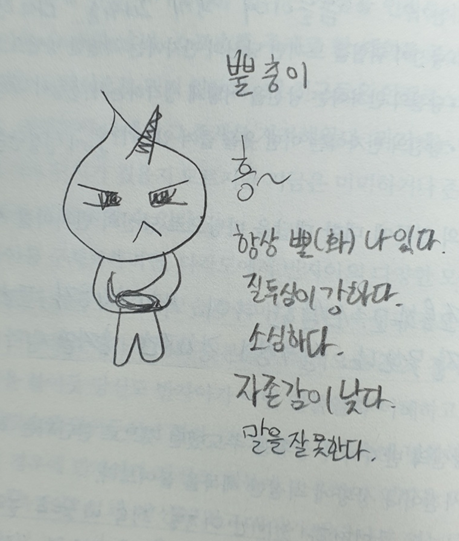 뿔충이
흥~
항상 뿔(화) 나있다.
질투심이 강하다.
소심하다.
자존감이 낮다.
말을 잘 못한다.